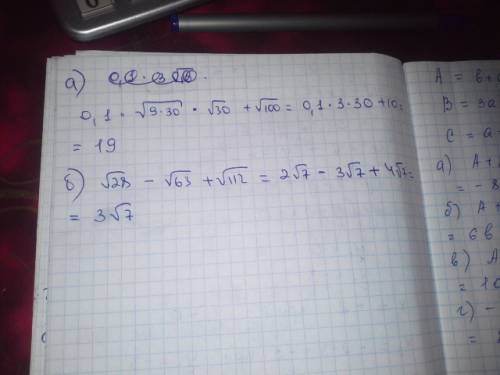 а)
0,1 · √9·30 · √30 + √100 = 0,1 · 3 · 30 + 10 =
= 19
б) √28 − √63 + √112 = 2√7 − 3√7 + 4√7 =
= 3√7
A = 6+
B = 3a
C = a
а) A +
= - 8
б) A +
= 6b
в) A
= 10
г) -
=